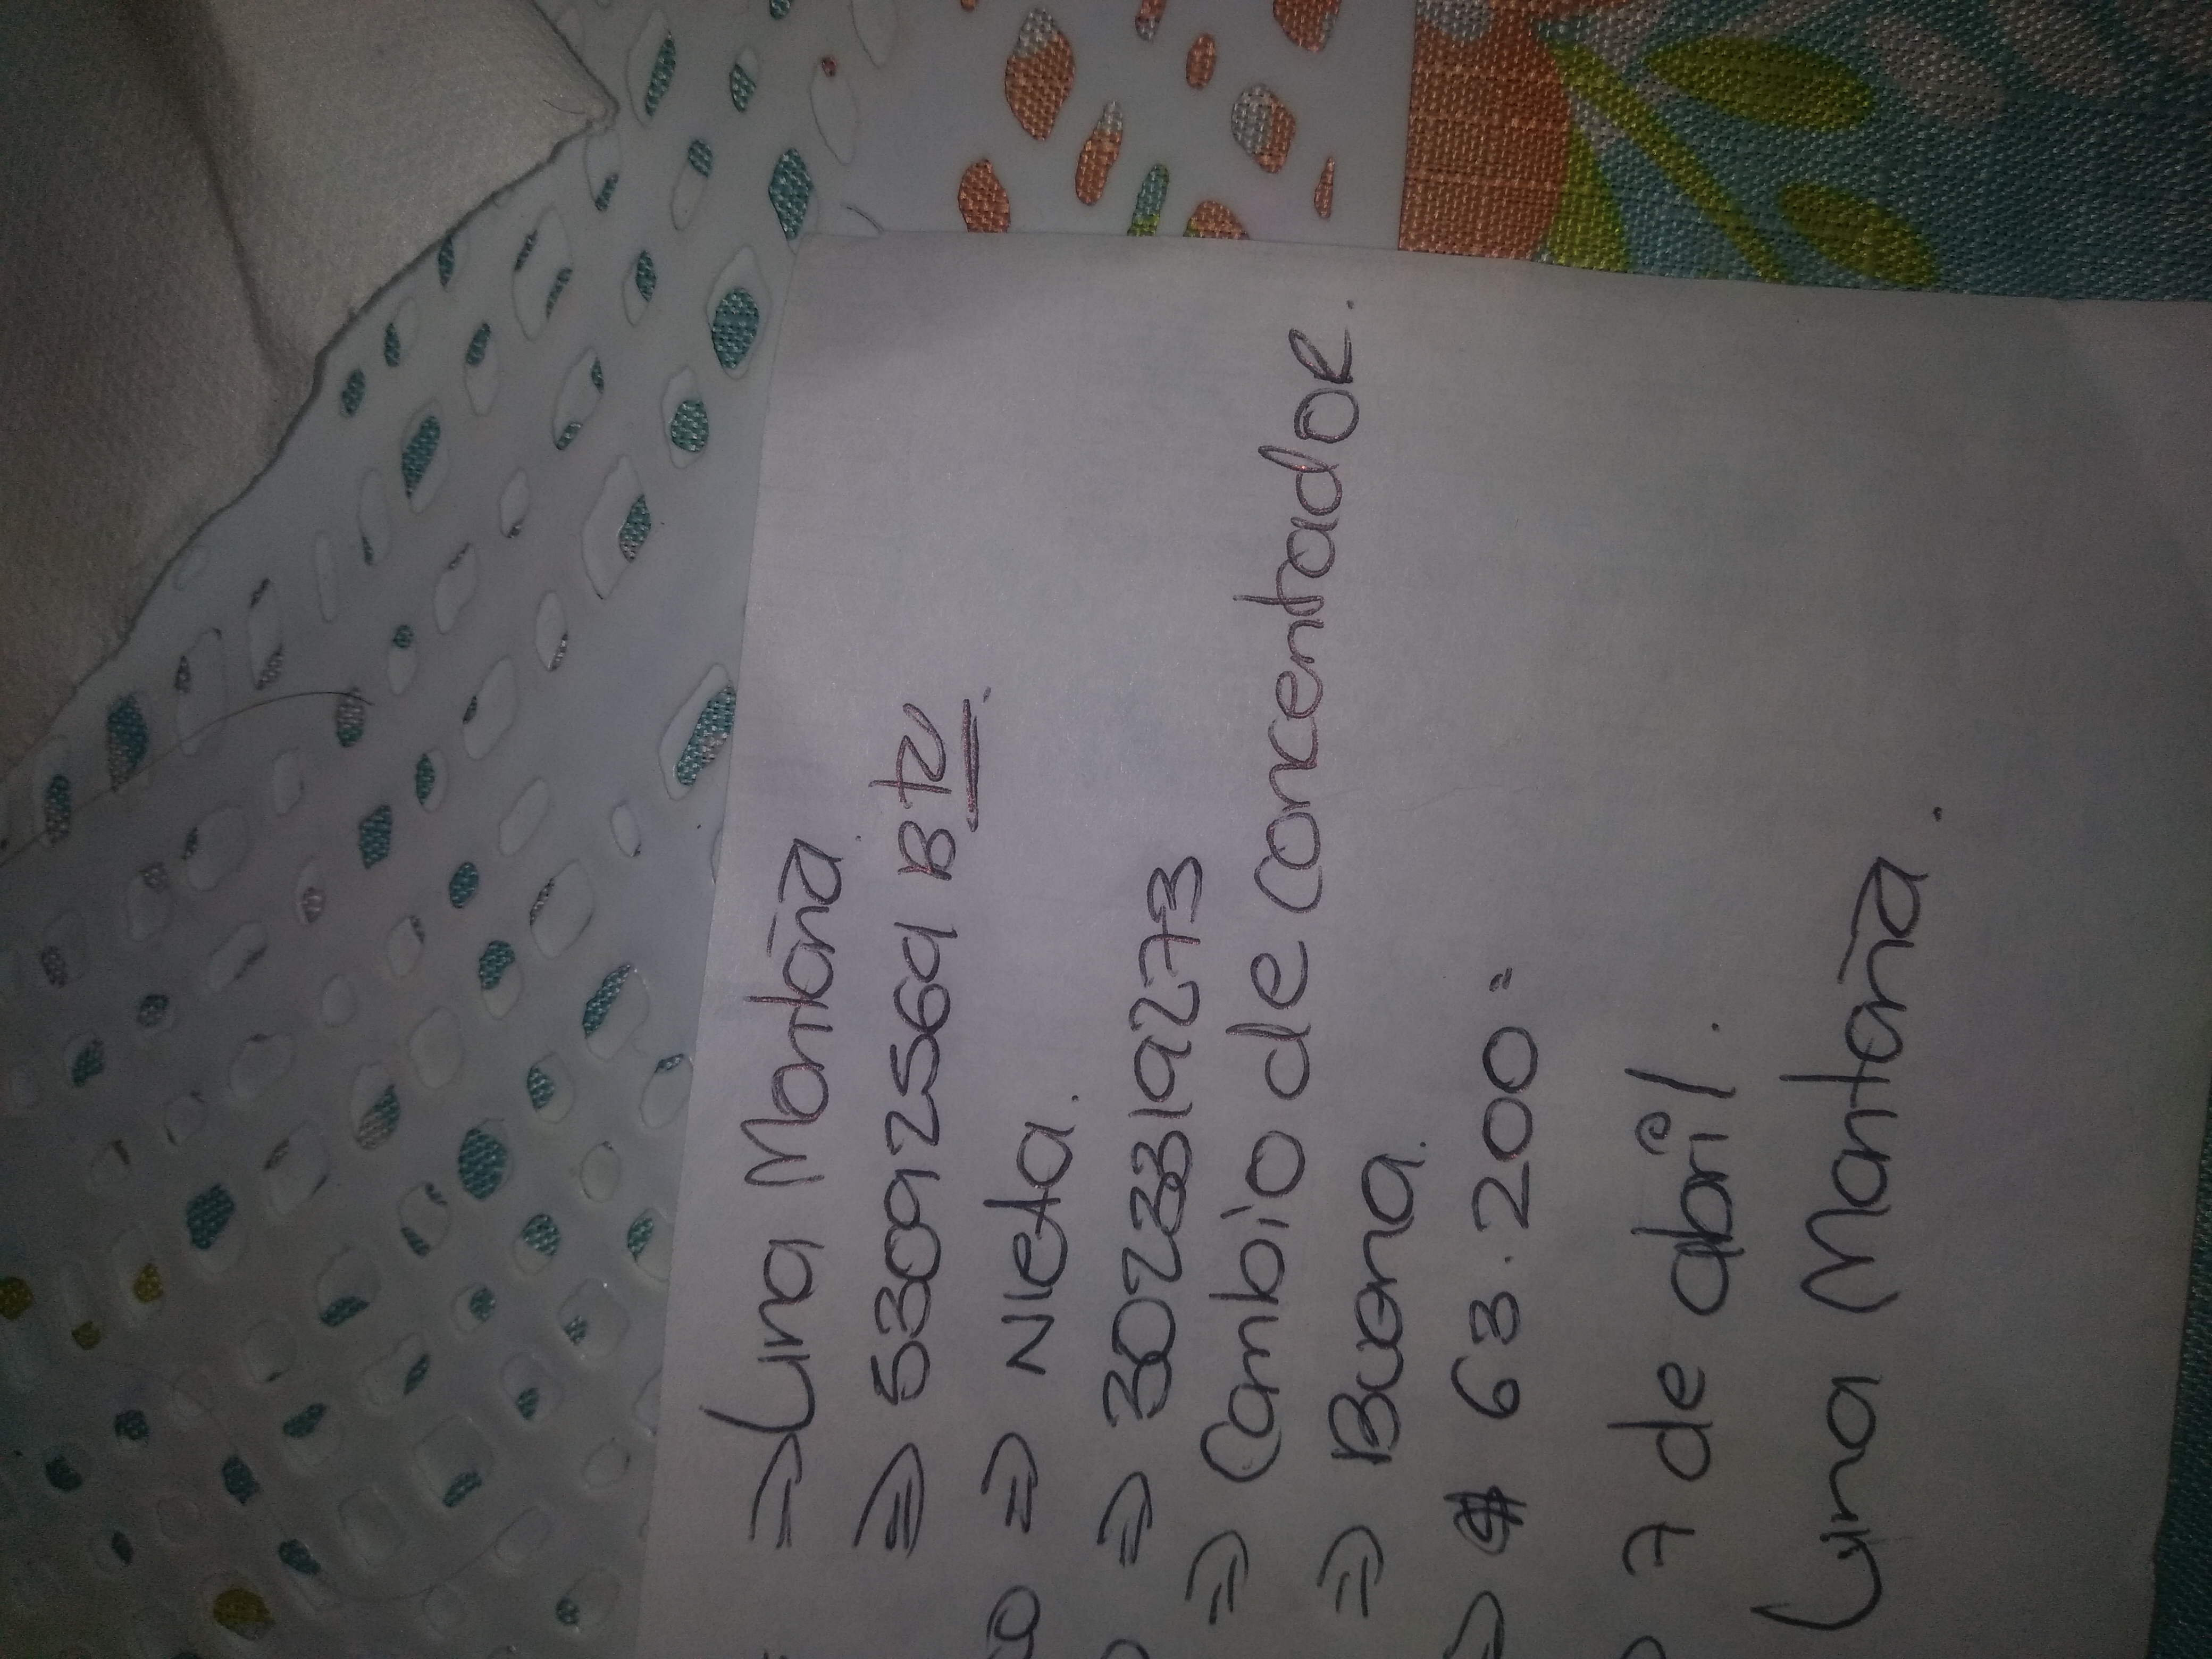 ⇒ Luna Montaña.
⇒ 53092569 Btu.
⇒ Nieta.
⇒ 3023319273
⇒ Cambio de Concentrador.
⇒ Buena.
⇒ $ 63.200=
7 de abril.
Luna Montaña.